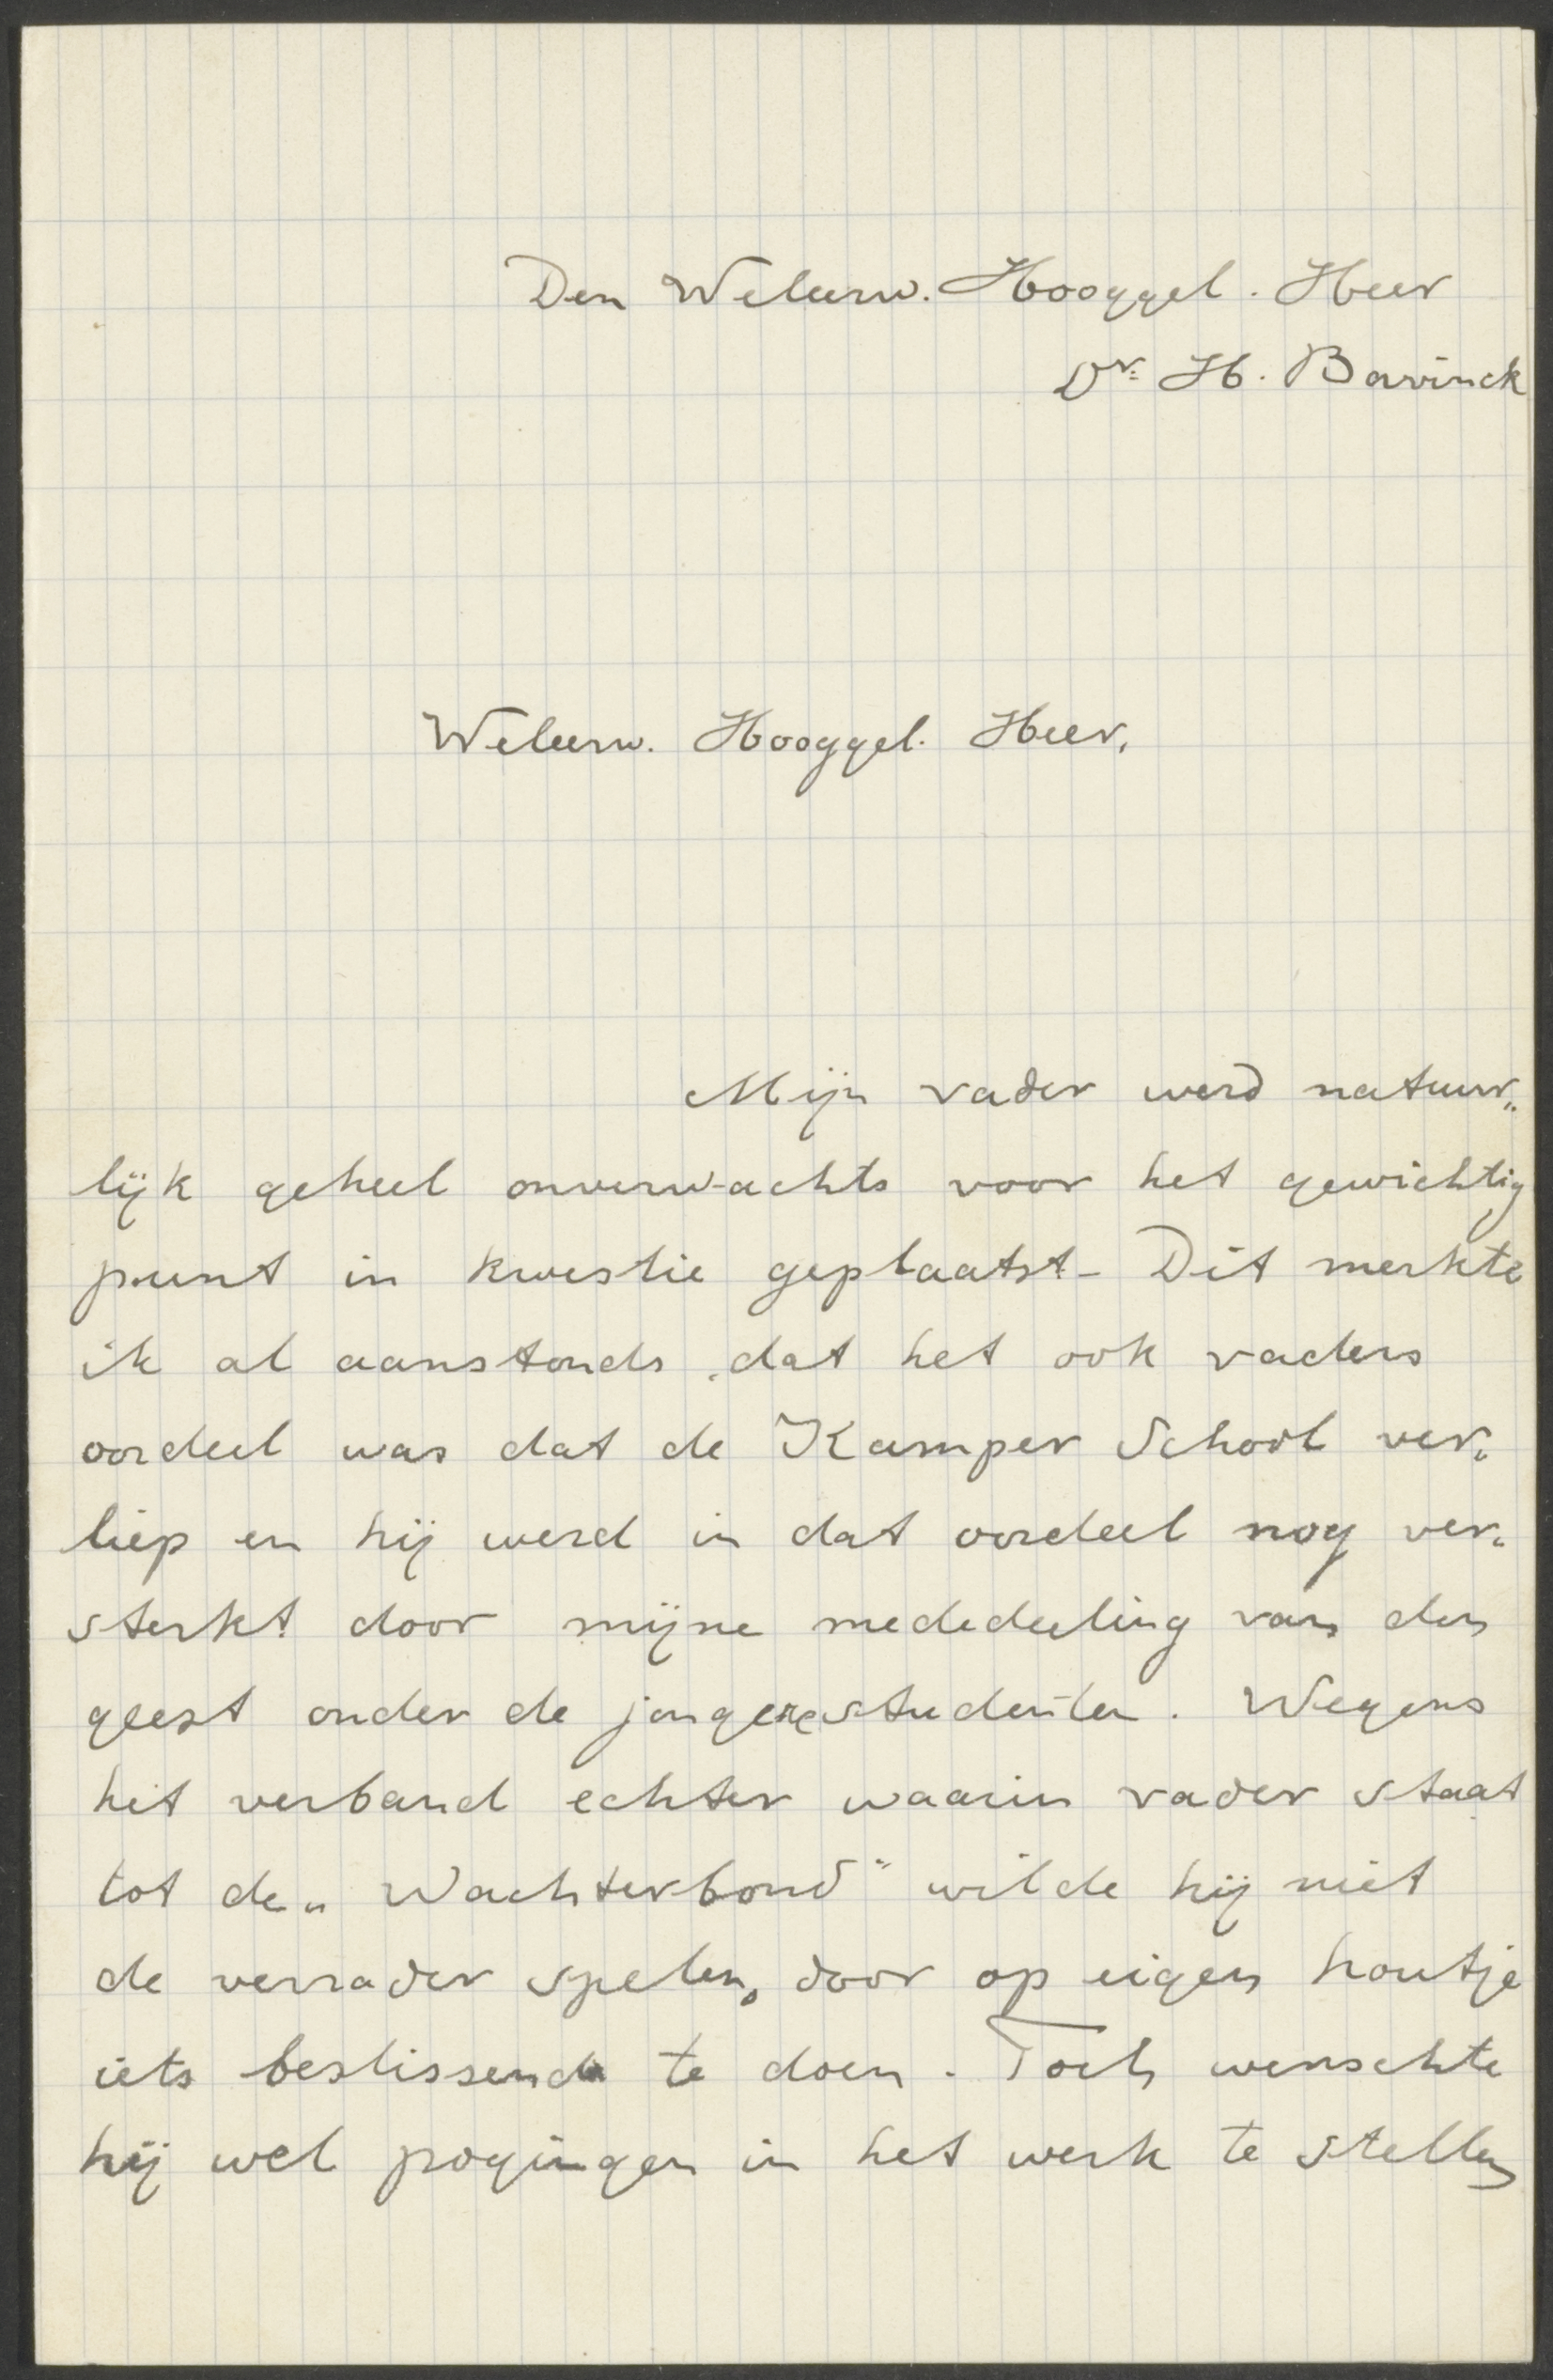 Den Weleerw. Hooggel. Heer
Dr. H. Bavinck
Weleerw. Hooggel. Heer,
Mijn vader werd natuur„
lijk geheel onverwachts voor het gewichtig
punt in kwestie geplaatst- Dit merkte
ik al aanstonds, dat het ook vaders
oordeel was dat de Kamper School ver„
liep en hij werd in dat oordeel nog ver„
sterkt door mijne mededeeling van den
geest onder de jongere studenten. Wegens
het verband echter waarin vader staat
tot de „Wachterbond" wilde hij niet
de verrader spelen, door op eigen houtje
iets beslissends te doen. Toch wenschte
hij wel pogingen in het werk te stellen